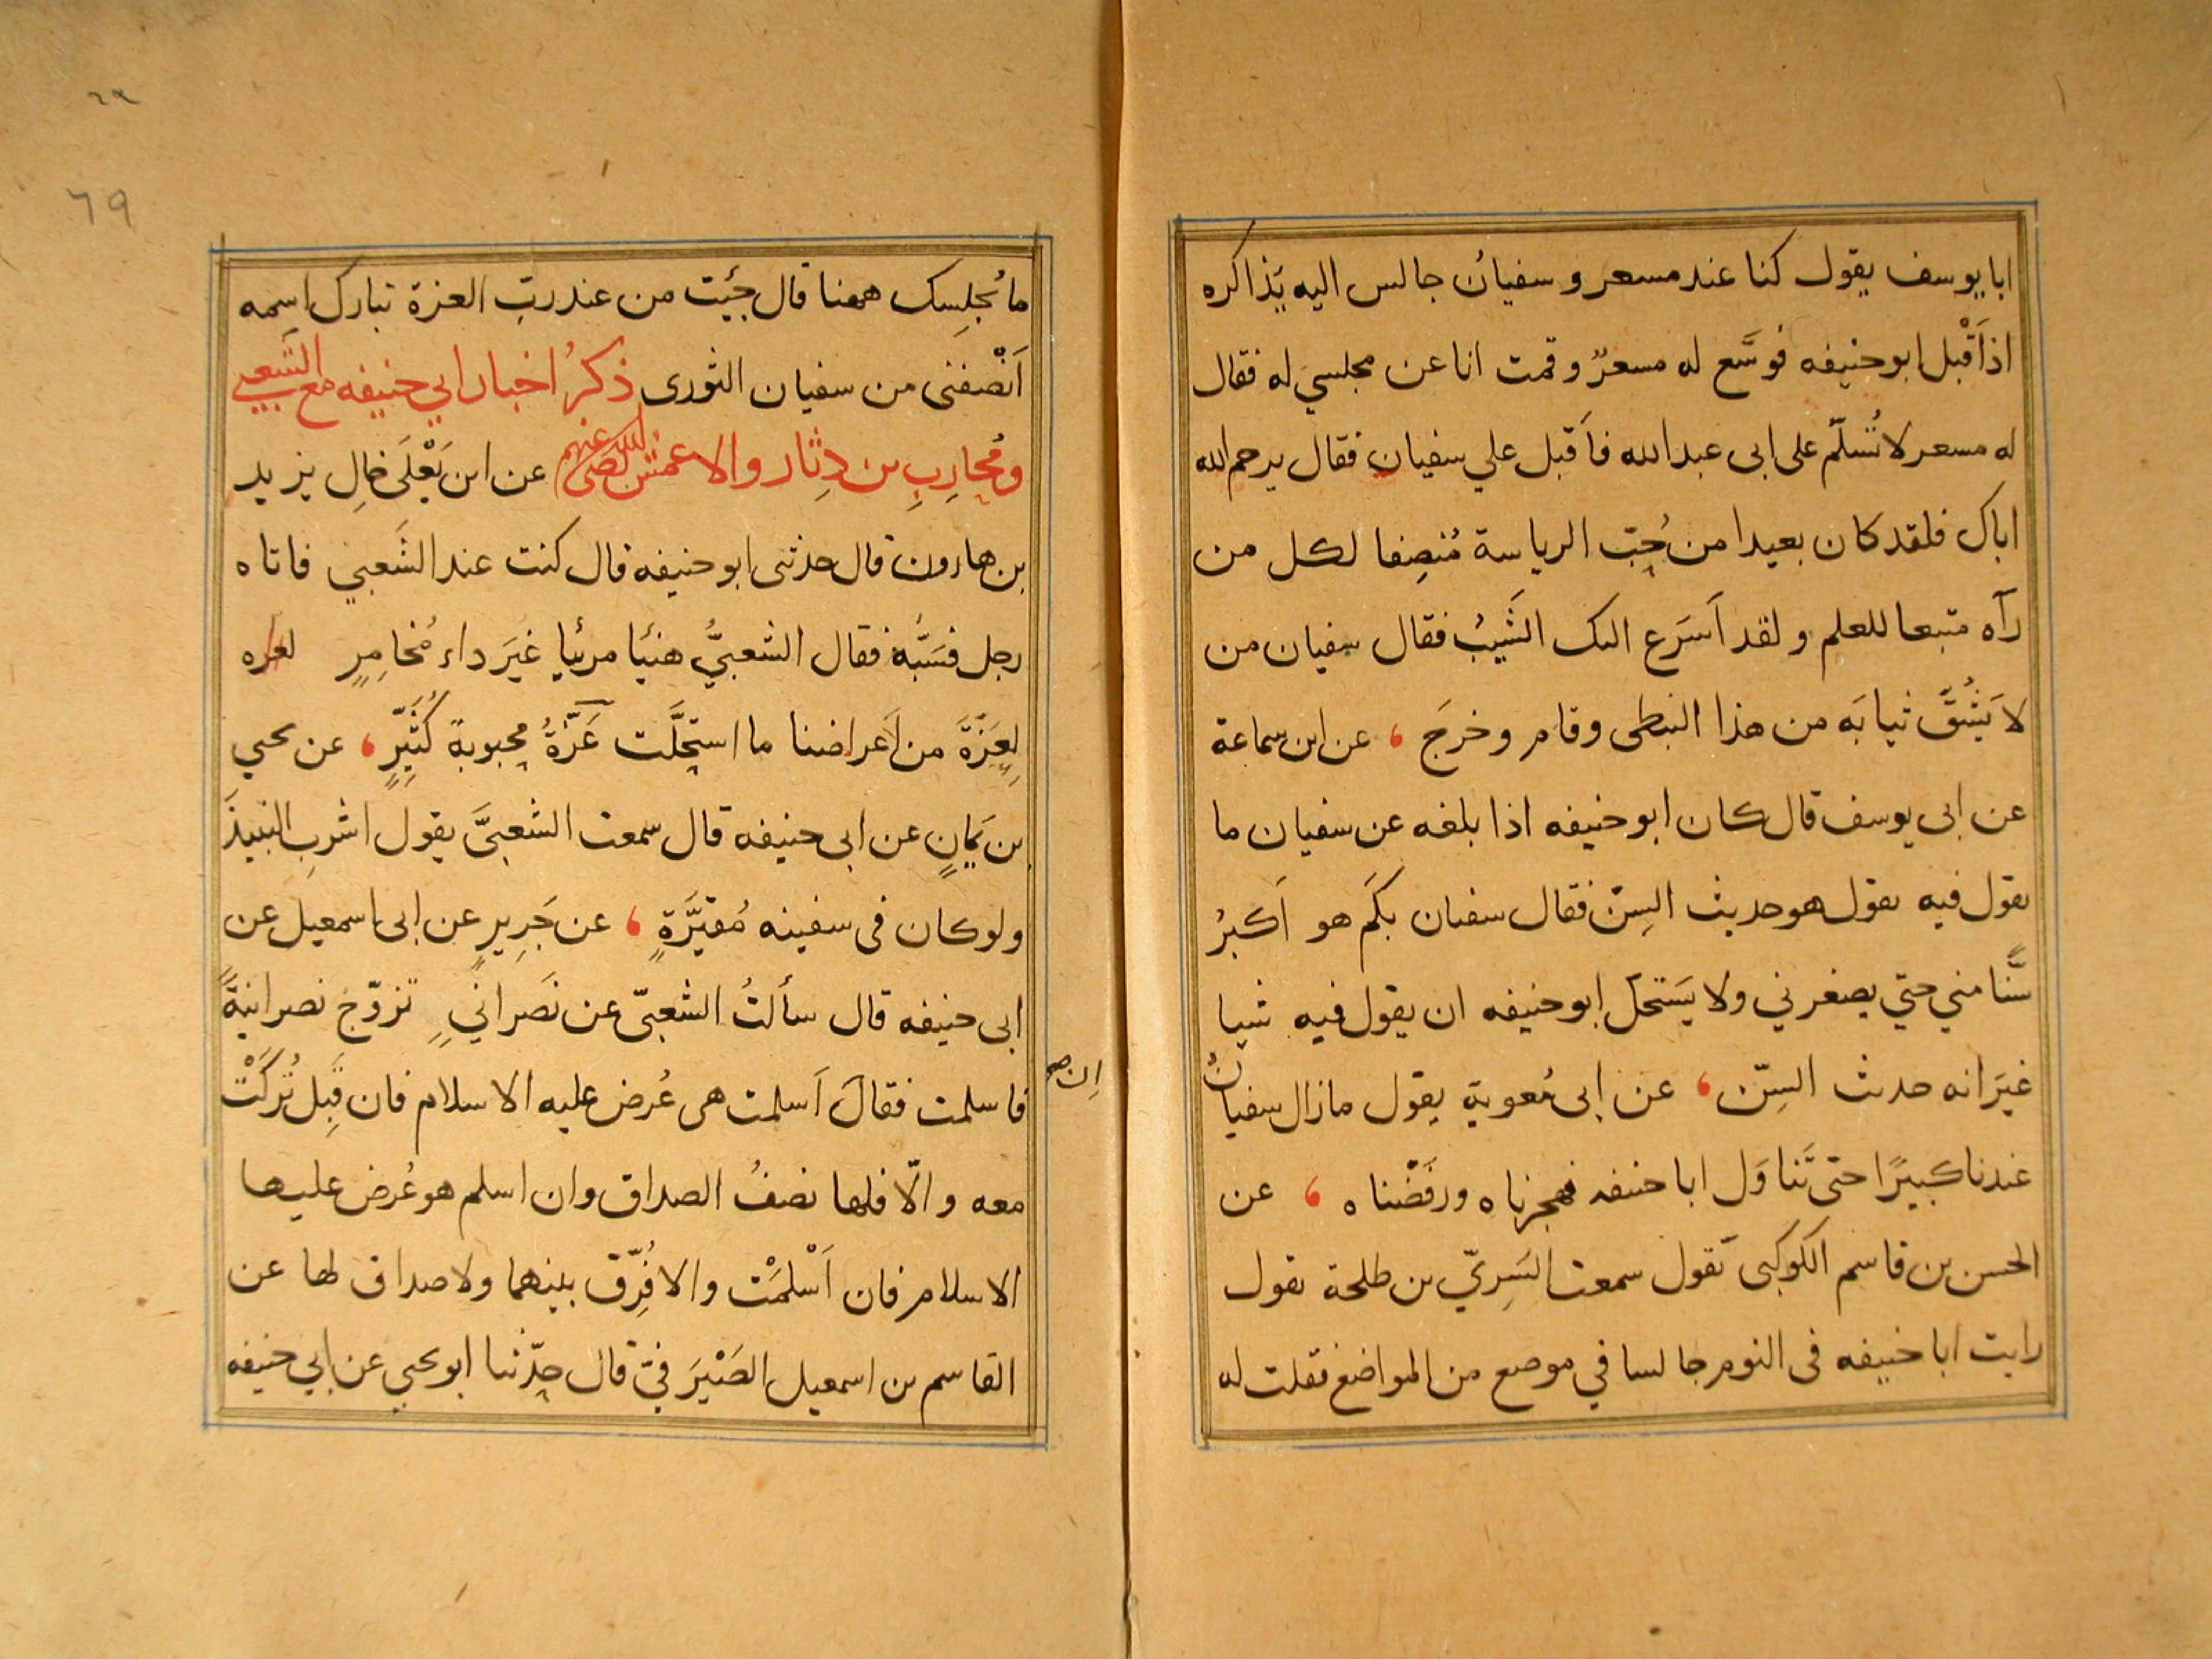 ابا يوسف يقول كنا عند مسعر و سفيانُ جالس اليه يَذاكره
اذ اَقْبل ابو حنيفه فوسَّع له مسعرٌ و قمت انا عن مجلسي له فقال
له مسعر لا تُسلّم على ابى عبدالله فاَقبل علي سفيان فقال يرحم الله
اباك فلقد كان بعيدا من حُبّ الرياسة مُنصِفا لكل من
رآه متبعا للعلم و لقد اَسَرع اليك الشَيبُ فقال سفيان من
لا يَشُقَّ ثيابَه من هذا النبطى وقام و خرجَ ، عن ابن سماعة
عن ابى يوسف قال كان ابو حنيفه اذا بلغه عن سفيان ما
يقول فيه يقول هو حديث السِنّ فقال سفيان بكَم هو اَكبرُ
سّنًا مني حتي يصغرني ولا يَستحلّ ابو حنيفه ان يقول فيه شيا
غيرَ انه حديث السِنّ ، عن ابى مُعوية يقول مازال سفيانُ
عندنا كبيرًا حتى تَناوَل ابا حنيفه فهجرناه ورفَضْناه ، عن
الحسن بن قاسم الكوكبى يقول سمعت السَرِيّ بن طلحة يقول
رايت ابا حنيفه فى النوم جالسا في موضع من المواضع فقلت له
٦٩
ما يُجلِسك ههنا قال جئت من عند ربّ العزة تبارك اسمه
اَنْصفنى من سفيان الثورى ذكرُ اخبار ابي حنيفه مع الشَعبي
ومُحارِبِ بن دِثار والاعمش رضى الله عنهم عن ابن يَعْلَى خالِ يزيد
بن هارون قال حدثنى ابو حنيفه قال كنت عند الشَعبي فاتاه
رجل فسَبَّه فقال الشعبيُّ هنيًا مرئيا غيَر داء مُخامِرٍ
لِعَزَةَ من اَعراضنا ما استحلَّت عَزّةُ محبوبة كُثَيِّرٍ ، عن يحيي
بن يَمانٍ عن ابى حنيفه قال سمعت الشعبىَّ يقول اشربِ النبيذَ
ولو كان فى سفينه مُقيَّرَةٍ ، عن جَرِيرٍ عن ابى اسمعيل عن
ابى حنيفه قال سألتُ الشعبىّ عن نَصرانيٍ تزوّج نصرانيةً
فاسلمت فقال اَسلمت هى عُرض عليه الاسلام فان قَبِل تُركَتْ
ان صح
معه والّا فلها نصفُ الصداق وان اسلم هو عُرض عليها
الاسلام فان اَسْلمَتْ والا فُرِّق بينهما ولا صداق لها عن
القاسم بن اسمعيل الصَيْرَفيّ قال حدّثنا ابو يحيي عن ابي حنيفه